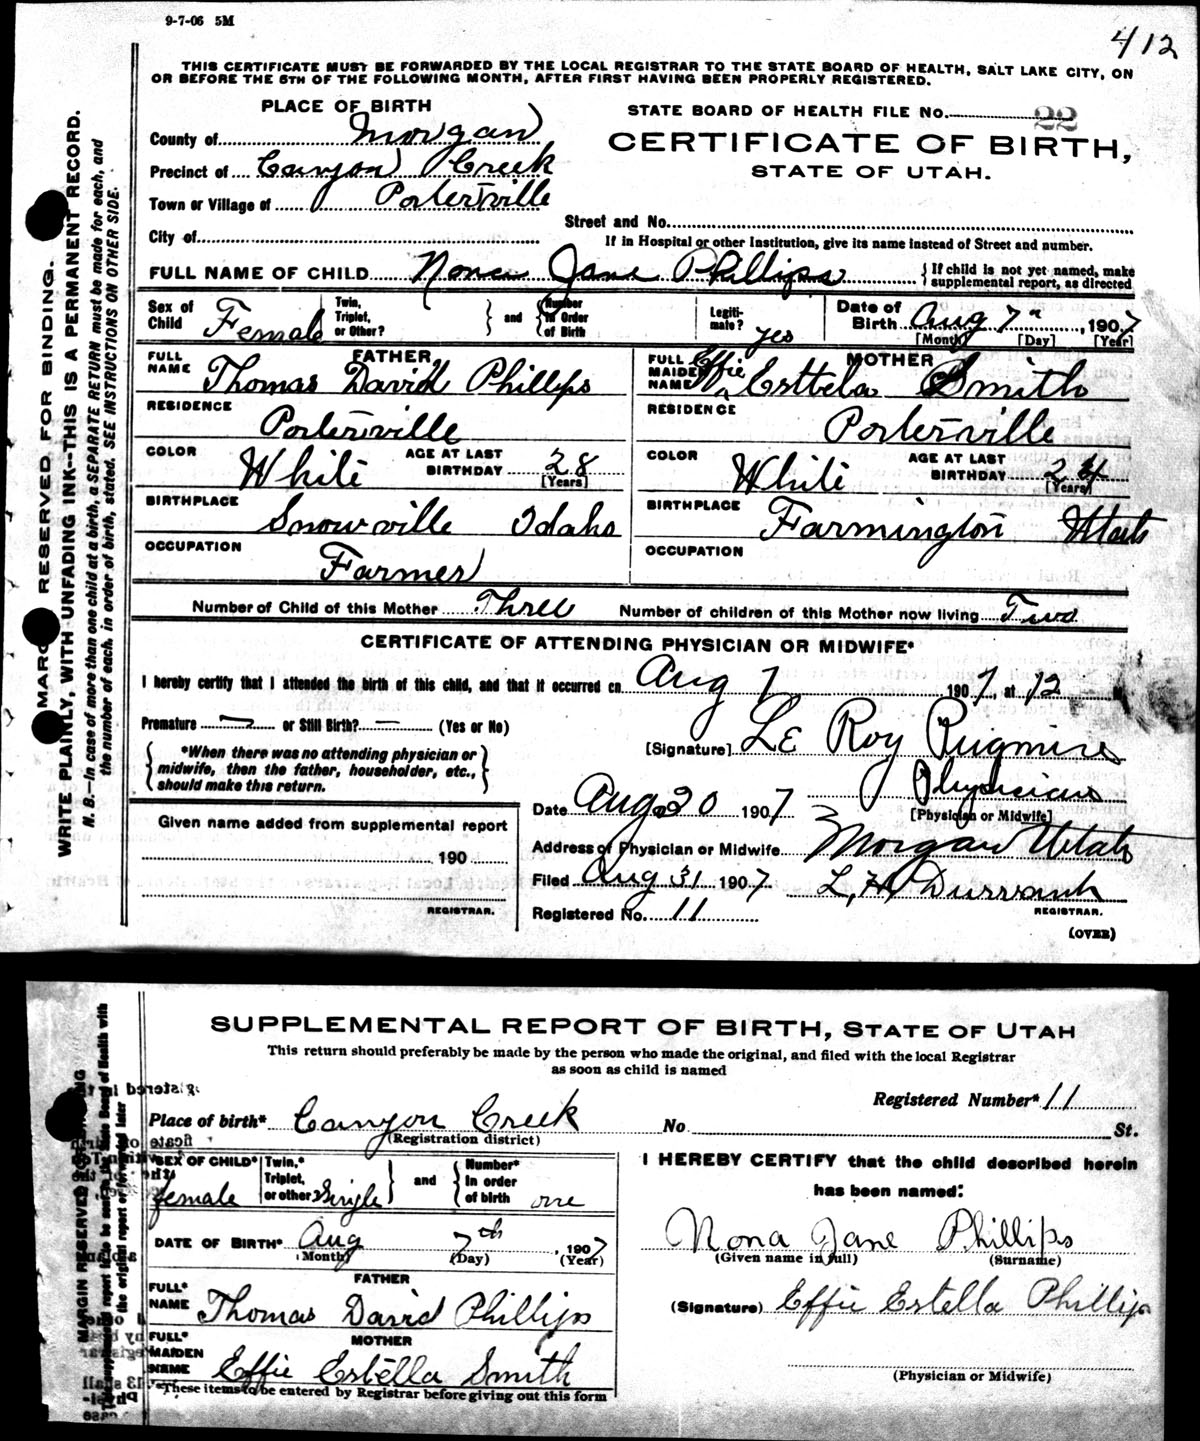 9-7-06 5M
412
THIS CERTIFICATE MUST BE FORWARDED BY THE LOCAL REGISTRAR TO THE STATE BOARD OF HEALTH, SALT LAKE CITY, ON
OR BEFORE THE 5TH OF THE FOLLOWING MONTH, AFTER FIRST HAVING BEEN PROPERLY REGISTERED.
PLACE OF BIRTH
STATE BOARD OF HEALTH FILE No. 22
County of Morgan
CERTIFICATE OF BIRTH,
Precinct of Canyon Creek
STATE OF UTAH.
Town or Village of Porterville
Street and No.
City of
If in Hospital or other Institution, give its name instead of Street and number.
FULL NAME OF CHILD Nona Jane Phillips
{If child is not yet named, make
supplemental report, as directed
Sex of Child Female
Twin, Triplet, or Other?
and
Number in Order of Birth
Legiti-mate? yes
Date of Birth Aug 7th, 1907
[Month] [Day] [Year]
FATHER
FULL NAME Thomas David Phillips
MOTHER
FULL MAIDEN NAME Effie Esttela Smith
RESIDENCE Porterville
RESIDENCE Porterville
COLOR White AGE AT LAST BIRTHDAY 28 [Years]
COLOR White AGE AT LAST BIRTHDAY 24 [Years]
BIRTHPLACE Snowville Idaho
BIRTHPLACE Farmington Utah
OCCUPATION Farmer
OCCUPATION
Number of Child of this Mother Three Number of children of this Mother now living Two
CERTIFICATE OF ATTENDING PHYSICIAN OR MIDWIFE*
I hereby certify that I attended the birth of this child, and that it occurred on Aug 7 1907, at 12 M
Premature — or Still Birth? — (Yes or No)
[Signature] Le Roy Pugmire
*When there was no attending physician or
midwife, then the father, householder, etc.,
should make this return.
Physician
[Physician or Midwife]
Date Aug 20 1907
Given name added from supplemental report
Address of Physician or Midwife Morgan Utah
190
Filed Aug 31 1907 L, H, Durrant
REGISTRAR.
REGISTRAR.
Registered No. 11
(OVER)
MARGIN RESERVED FOR BINDING.
WRITE PLAINLY, WITH UNFADING INK--THIS IS A PERMANENT RECORD.
N. B.—In case of more than one child at a birth, a SEPARATE RETURN must be made for each, and
the number of each, in order of birth, stated. SEE INSTRUCTIONS ON OTHER SIDE.
SUPPLEMENTAL REPORT OF BIRTH, STATE OF UTAH
This return should preferably be made by the person who made the original, and filed with the local Registrar
as soon as child is named
Registered Number* 11
Place of birth* Canyon Creek No St.
(Registration district)
SEX OF CHILD* female
Twin,* Triplet, or other? Single
and
Number* In order of birth one
I HEREBY CERTIFY that the child described herein
has been named:
DATE OF BIRTH* Aug 7th, 1907
(Month) (Day) (Year)
Nona Jane Phillips
(Given name in full) (Surname)
FATHER
FULL* NAME Thomas David Phillips
(Signature) Effie Estella Phillips
MOTHER
FULL* MAIDEN NAME Effie Estella Smith
(Physician or Midwife)
*These items to be entered by Registrar before giving out this form
MARGIN RESERVED